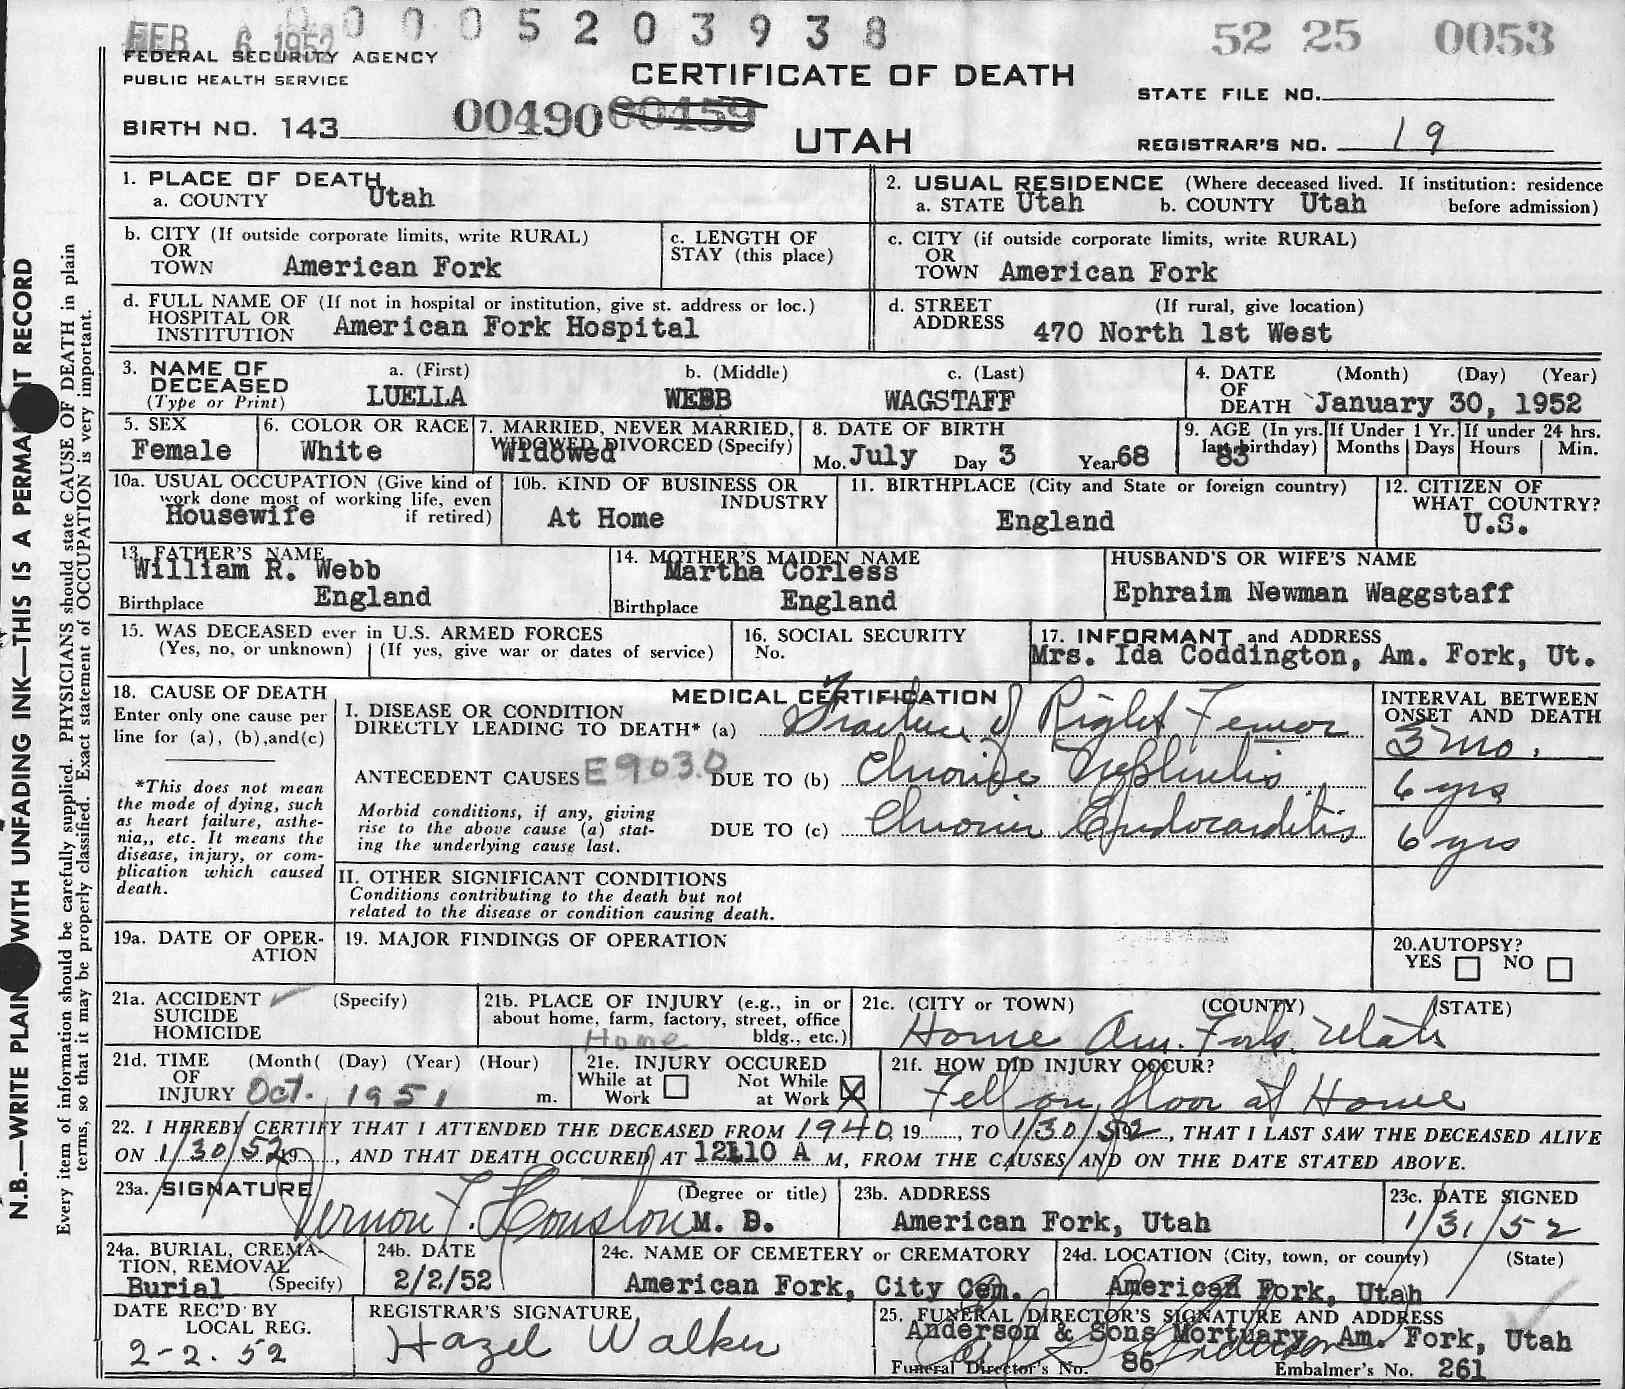 FEB 6 1952
0 0 0 5 2 0 3 9 3 8
52 25 0053
FEDERAL SECURITY AGENCY
PUBLIC HEALTH SERVICE
CERTIFICATE OF DEATH
STATE FILE NO.
BIRTH NO. 143
00490 00459
UTAH
REGISTRAR'S NO. 19
1. PLACE OF DEATH
a. COUNTY Utah
2. USUAL RESIDENCE (Where deceased lived. If institution: residence
a. STATE Utah b. COUNTY Utah before admission)
b. CITY (If outside corporate limits, write RURAL)
OR
TOWN American Fork
c. LENGTH OF
STAY (this place)
c. CITY (if outside corporate limits, write RURAL)
OR
TOWN American Fork
d. FULL NAME OF (If not in hospital or institution, give st. address or loc.)
HOSPITAL OR
INSTITUTION American Fork Hospital
d. STREET (If rural, give location)
ADDRESS 470 North 1st West
3. NAME OF
DECEASED
(Type or Print)
a. (First) b. (Middle) c. (Last)
LUELLA WEBB WAGSTAFF
4. DATE (Month) (Day) (Year)
OF
DEATH January 30, 1952
5. SEX
Female
6. COLOR OR RACE
White
7. MARRIED, NEVER MARRIED,
WIDOWED, DIVORCED (Specify)
Widowed
8. DATE OF BIRTH
Mo. July Day 3 Year 68
9. AGE (In yrs.
last birthday)
83
If Under 1 Yr.
Months Days
If under 24 hrs.
Hours Min.
10a. USUAL OCCUPATION (Give kind of
work done most of working life, even
if retired)
Housewife
10b. KIND OF BUSINESS OR
INDUSTRY
At Home
11. BIRTHPLACE (City and State or foreign country)
England
12. CITIZEN OF
WHAT COUNTRY?
U.S.
13. FATHER'S NAME
William R. Webb
Birthplace England
14. MOTHER'S MAIDEN NAME
Martha Corless
Birthplace England
HUSBAND'S OR WIFE'S NAME
Ephraim Newman Waggstaff
15. WAS DECEASED ever in U.S. ARMED FORCES
(Yes, no, or unknown) (If yes, give war or dates of service)
16. SOCIAL SECURITY
No.
17. INFORMANT and ADDRESS
Mrs. Ida Coddington, Am. Fork, Ut.
18. CAUSE OF DEATH
Enter only one cause per
line for (a), (b),and(c)
*This does not mean
the mode of dying, such
as heart failure, asthe-
nia,, etc. It means the
disease, injury, or com-
plication which caused
death.
MEDICAL CERTIFICATION
I. DISEASE OR CONDITION
DIRECTLY LEADING TO DEATH* (a) Fracture of Right Femor
ANTECEDENT CAUSES E903.0 DUE TO (b) Chronic Nephritis
Morbid conditions, if any, giving
rise to the above cause (a) stat-
ing the underlying cause last.
DUE TO (c) Chronic Endocarditis
INTERVAL BETWEEN
ONSET AND DEATH
3 mo.
6 yrs
6 yrs
II. OTHER SIGNIFICANT CONDITIONS
Conditions contributing to the death but not
related to the disease or condition causing death.
19a. DATE OF OPER-
ATION
19. MAJOR FINDINGS OF OPERATION
20.AUTOPSY?
YES NO
21a. ACCIDENT ✓ (Specify)
SUICIDE
HOMICIDE
21b. PLACE OF INJURY (e.g., in or
about home, farm, factory, street, office
bldg., etc.)
Home
21c. (CITY or TOWN) (COUNTY) (STATE)
Home Am. Fork Utah
21d. TIME (Month( (Day) (Year) (Hour)
OF
INJURY Oct. 1951 m.
21e. INJURY OCCURED
While at Work Not While at Work X
21f. HOW DID INJURY OCCUR?
Fell on floor at Home
22. I HEREBY CERTIFY THAT I ATTENDED THE DECEASED FROM 1940, 19......, TO 1/30/52, 19......, THAT I LAST SAW THE DECEASED ALIVE
ON 1/30/52, 19, AND THAT DEATH OCCURED AT 12:10 A M, FROM THE CAUSES AND ON THE DATE STATED ABOVE.
23a. SIGNATURE (Degree or title)
Vernon F. Houston M. D.
23b. ADDRESS
American Fork, Utah
23c. DATE SIGNED
1/31/52
24a. BURIAL, CREMA-
TION, REMOVAL
Burial (Specify)
24b. DATE
2/2/52
24c. NAME OF CEMETERY or CREMATORY
American Fork, City Cem.
24d. LOCATION (City, town, or county) (State)
American Fork, Utah
DATE REC'D BY
LOCAL REG.
2-2-52
REGISTRAR'S SIGNATURE
Hazel Walker
25. FUNERAL DIRECTOR'S SIGNATURE AND ADDRESS
Anderson & Sons Mortuary, Am. Fork, Utah
Funeral Director's No. 86 Embalmer's No. 261
N.B.—WRITE PLAIN WITH UNFADING INK—THIS IS A PERMA T RECORD
Every item of information should be carefully supplied. PHYSICIANS should state CAUSE OF DEATH in plain
terms, so that it may be properly classified. Exact statement of OCCUPATION is very important.